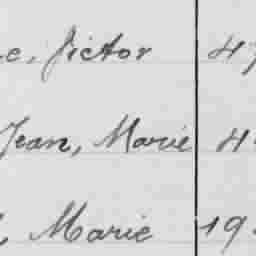 c, Victor 47
Jean, Marie 4
, Marie 19